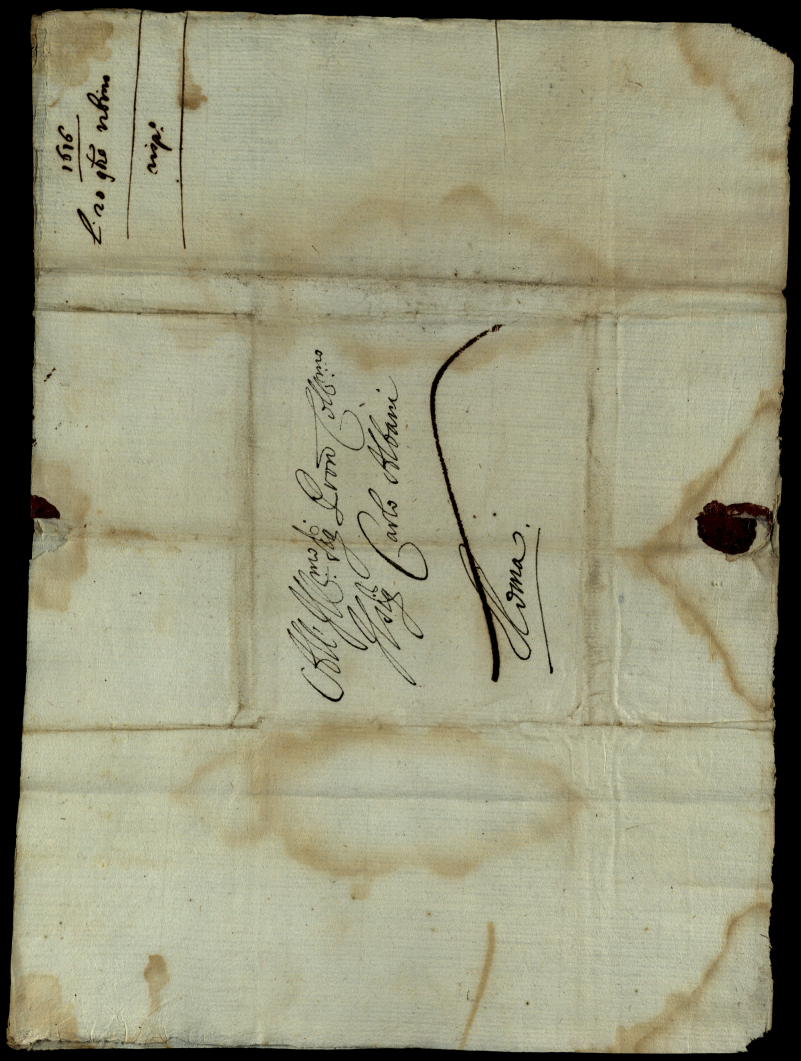 1616
L. 20 gbre Urbino
risp.
All' Ill.mo Sig.r e Pron Coll.mo
Il Sig.
Carlo Albani
Roma.